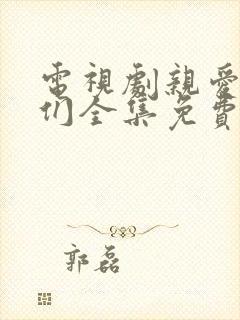 電視劇親愛
们全集免費
郭磊